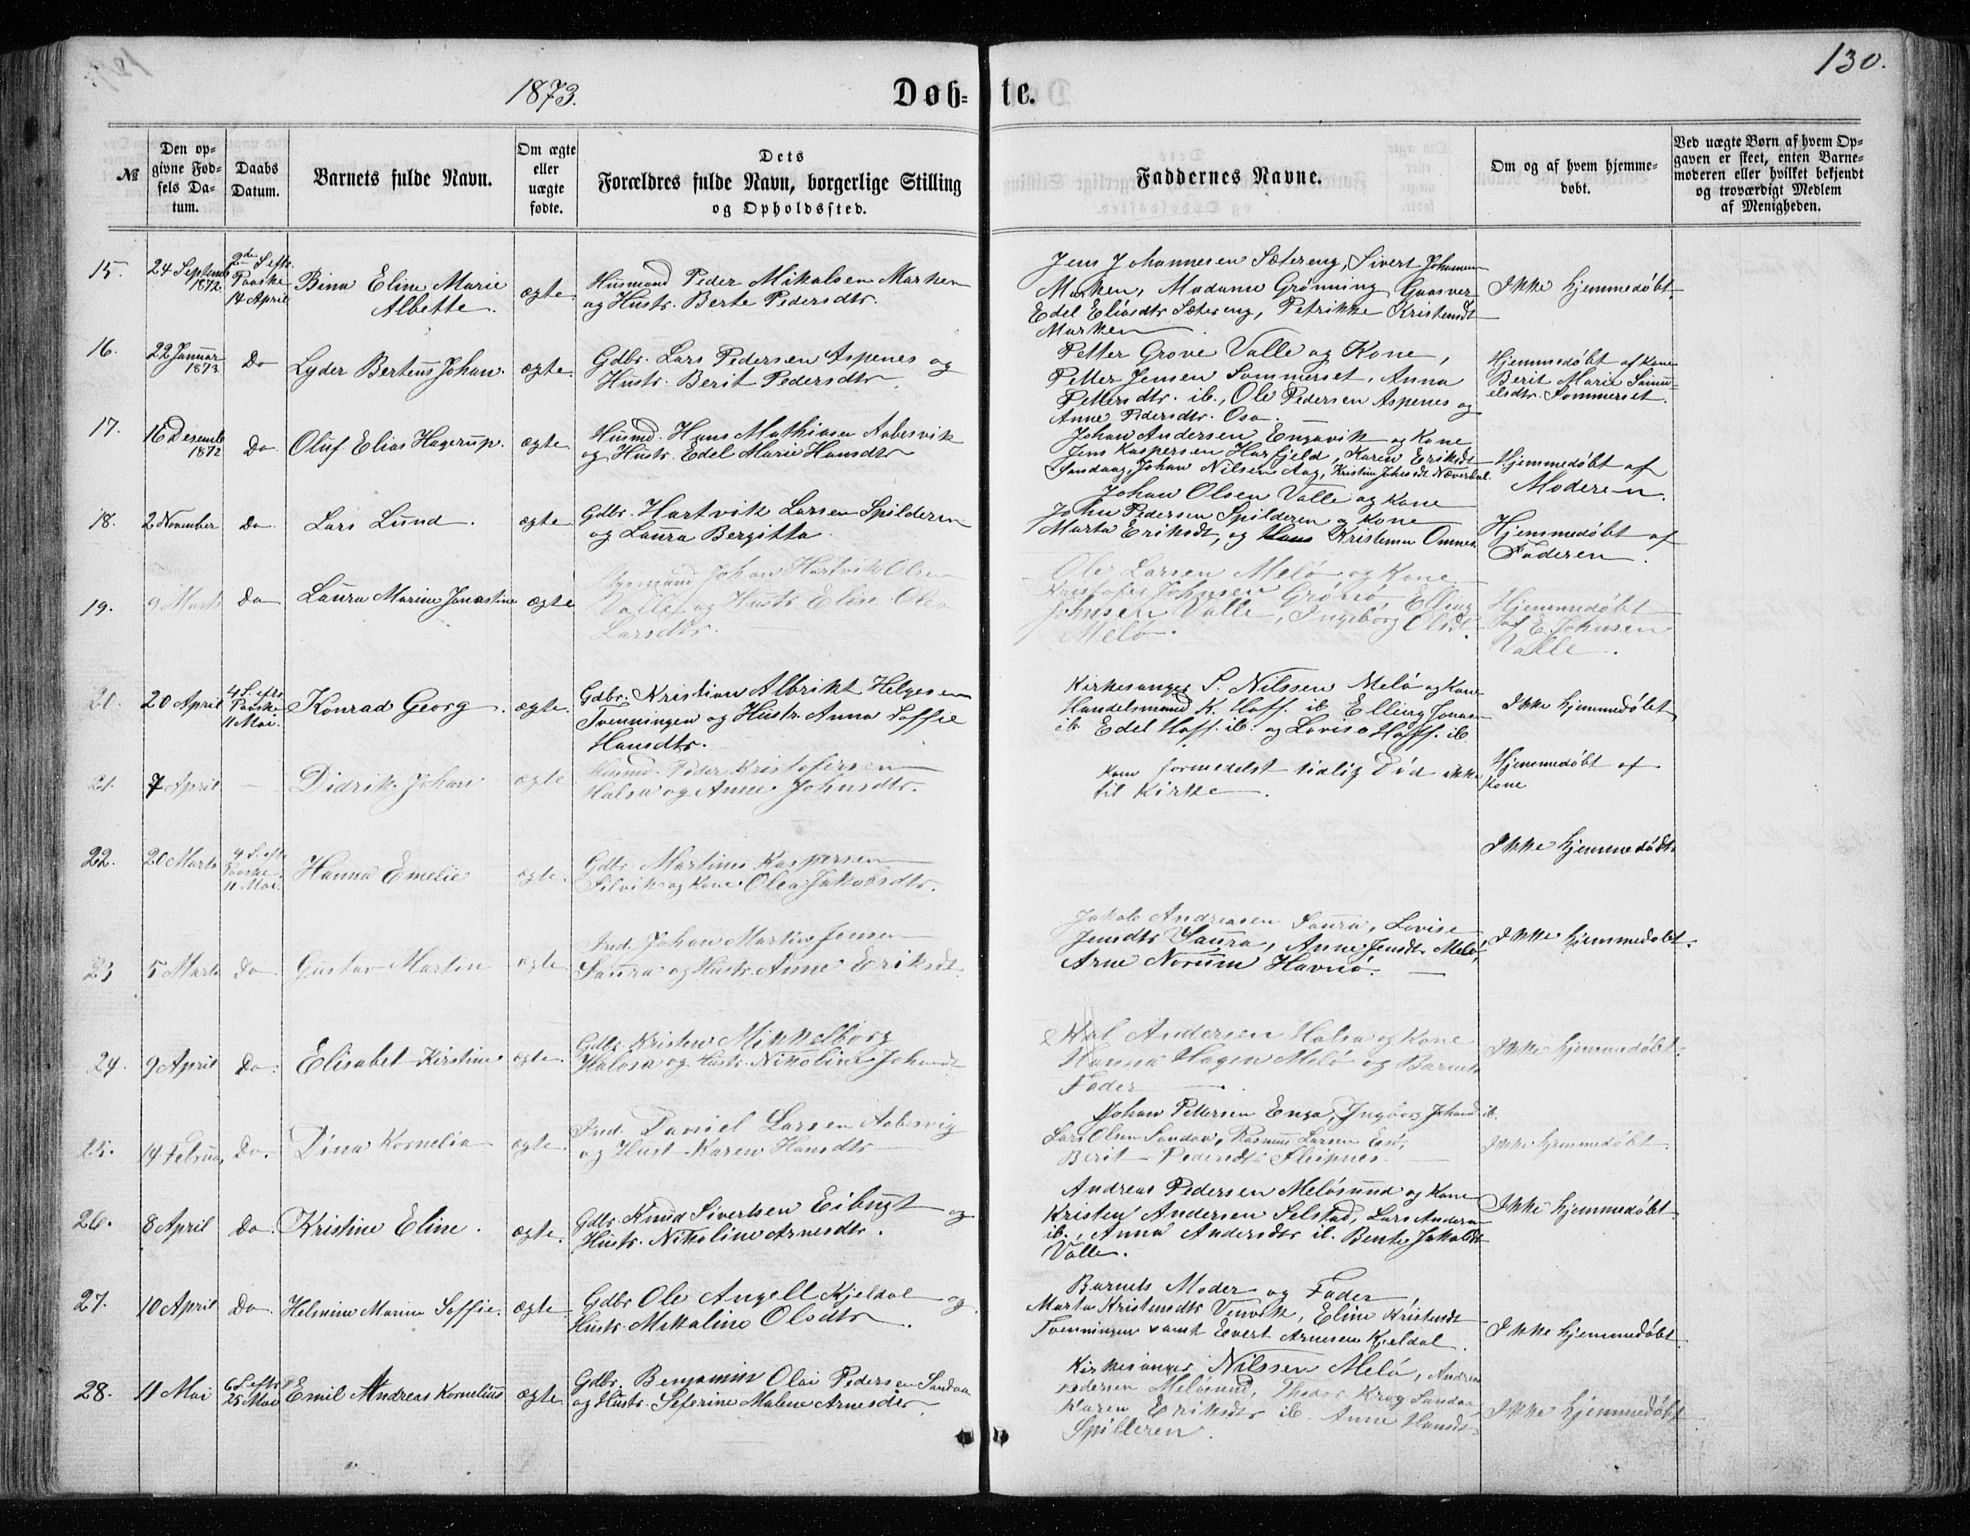 130.
1873.
Døb-te.
№
Den opgivne Fødsels Datum.
Daabs Datum.
Barnets fulde Navn.
Om ægte eller uægte fødte.
Dets Forældres fulde Navn, borgerlige Stilling og Opholdssted.
Faddernes Navne.
Om og af hvem hjemmedøbt.
Ved uægte Børn af hvem Opgaven er skeet, enten Barnemoderen eller hvilket bekjendt og troværdigt Medlem af Menigheden.
15.
24 Septemb 1872
2den S eftr. Paaske 14 April
Bina Eline Marie
Albette.
ægte
Husmand Peder Mikalsen Marken
og Hustr. Berte Pedersdtr.
Jens Johannesen Sætereng, Sivert Johannesen
Marken, Madame Grønning Gaasvær
Edel Eliasdtr Sætereng, Petrikke Kristensdt
Marken
Ikke hjemmedøbt.
16.
22 Januar 1873
Do
Lyder Berteus Johan.
ægte.
Gdbr. Lars Pedersen Aspenes og
Hustr. Berit Pedersdtr.
Petter Grove Valle og Kone,
Petter Jensen Sommerset, Anna
Pettersdtr. ib., Ole Pedersen Aspenes og
Anne Pedersdtr. Osa.
Hjemmedøbt af Kone
Berit Marie Samuelsdtr. Sommerset.
17.
16 Desemb 1872
Do
Oluf Elias Hagerup.
ægte.
Husmd. Hans Mathiasen Aabesvik
og Hustr. Edel Marie Hansdtr
Johan Andersen Engavik og Kone
Jens Kaspersen Harfjeld, Karen Eriksdt
Sandaag, Johan Nilsen Aag, Kristine Johnsdt Næverdal.
Hjemmedøbt af
Moderen.
18.
2 November
Do
Lars Lund.
ægte
Gdbr. Hartvik Larsen Spilderen
og Laura Bergitta.
Johan Olsen Valle og Kone
John Pedersen Spilderen og Kone
Marta Eriksdt, og Hans Kristensen Omnes.
Hjemmedøbt af
Faderen.
19.
9 Marts
Do
Laura Marine Janastine
ægte
Johan Hartvik Olsen
Valle og Hustr Elise Olea
Larsdtr.
Ole Larsen Melø og Kone
Kristofer Johnsen Grønø, Elling
Johnsen Valle, Ingeborg Olsdt.
Melø.
Hjemmedøbt
af E. Johnsen
Valle.
20.
20 April
4 S. eftr Paaske 11 Mai.
Konrad Georg.
ægte.
Gdbr. Kristian Albrikt Helgesen
Tvenningen og Hustr Anna Soffie
Hansdtr.
Kirkesanger S. Nilssen Melø og Kone
Handelsmand K. Hoff. ib Elling Jonasen
ib Edel Hoff. ib. og Lovise Hoff. ib.
Ikke hjemmedøbt
21.
7 April
Didrik Johan
ægte
Husmd. Peder Kristofersen
Halsa og Anne Johnsdtr.
Kom formedelst tidlig Død ikke
til Kirke.
Hjemmedøbt af
Kone
22.
20 Marts
4 S. eftr Paaske 11 Mai.
Hanna Emelie
ægte.
Gdbr. Martinus Kaspersen
og Kone Olea Jakobsdtr.
Ikke hjemmedøbt.
23
5 Marts
Do
Gustav Martin
ægte
Ind. Johan Martin Jensen
Saura og Hustr. Anne Eriksdt.
Jakob Andreasen Saura, Lovise
Jensdtr Saura, Anne Jensdt. Melø,
Arne Norum Havnø.
Ikke hjemmedøbt.
24.
9 April
Do.
Elisabet Kirstine
ægte.
Gdbr. Kristen Mikkelborg
Halosa og Hustr. Nikoline Johansdt
Karl Andersen Halsa og Kone
Hanna Hagen Melø og Barnets
Fader
Ikke hjemmedøbt.
25.
14 Februar
Do.
Dina Kornelia
ægte.
Ind. Daniel Larsen Aabesvig
og Hust Karen Hansdtr
Johan Pettersen Enga, Ingeborg Johansd ib.
Lars Olsen Sandaa, Rasmus Larsen
Berit Pedersdtr Fleipnes.
Ikke hjemmedøbt.
26.
8 April
Do.
Kristine Eline.
ægte.
Gdbr. Knud Sivertsen Eibugt og
Hustr. Nikoline Arnesdtr.
Andreas Pedersen Meløsund og Kone
Kristen Andersen Selstad, Lars Andersen
ib., Anna Andersdtr ib. Bente Jakobsdt
Valle.
Ikke hjemmedøbt.
27.
10 April
Do.
Helmine Marine Soffie.
ægte
Gdbr Ole Angell Kjeldal og
Hustr. Mikaline Olsdtr.
Barnets Moder og Fader,
Marta Kristensdtr Venvik, Eline Kristensdt
Tvenningen samt Evert Arnesen Kjeldal.
Ikke hjemmedøbt.
28.
11 Mai
6 S. eftr P. 25 Mai
Emil Andreas Kornelius
ægte
Gdbr. Benjamin Olai Pedersen Sandaa
og Hustr. Seferine Malene Arnesdtr
Kirkesanger Nilssen Melø, Andreas
Pedersen Meløsund, Theodor Krog Sandaa,
Karen Eriksdtr ib. Anne Hansdt
Spilderen.
Ikke hjemmedøbt